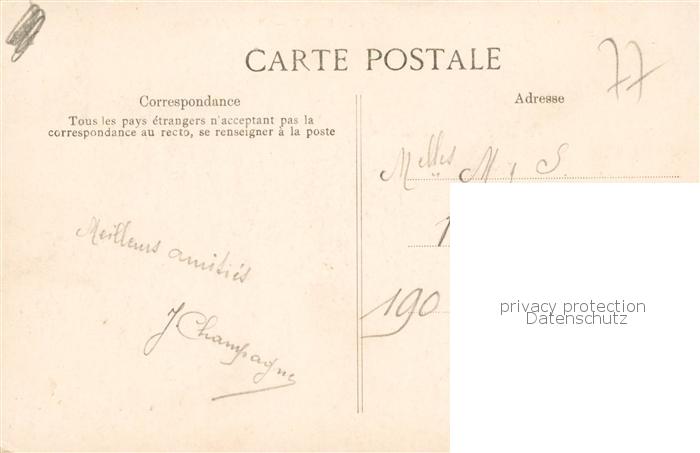 CARTE POSTALE
77
Correspondance
Tous les pays étrangers n'acceptant pas la
correspondance au recto, se renseigner à la poste
Adresse
Melles M S.
1
190
Meilleurs amitiés
J Champagne
privacy protection
Datenschutz